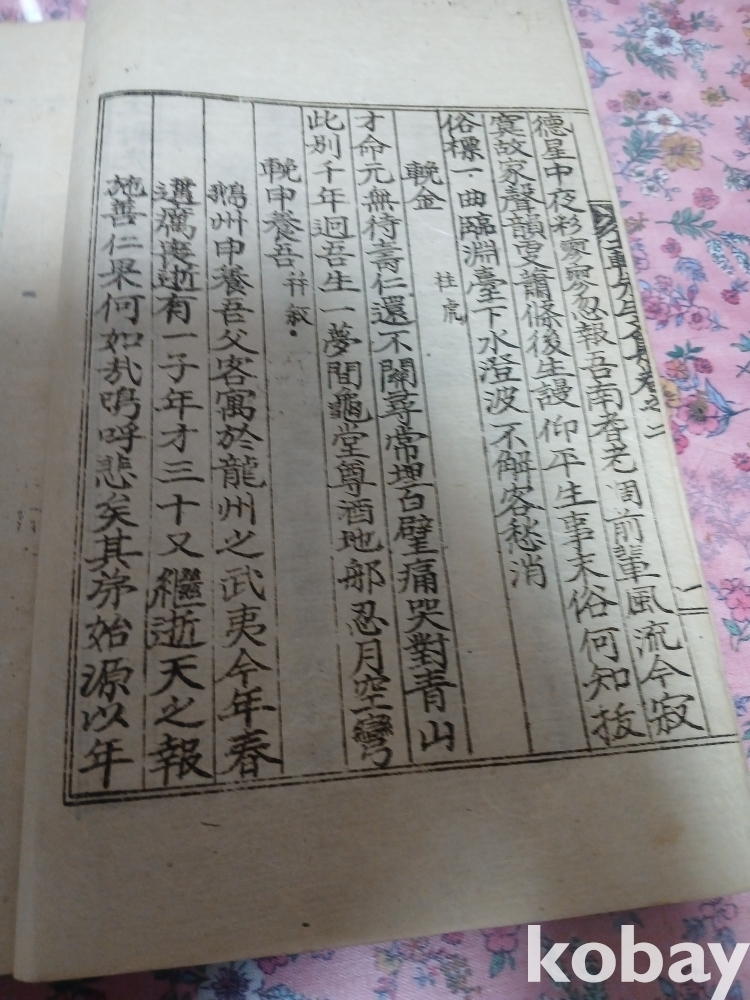 德星中夜彩寥寥忍報吾南耆老凋前輩風流今寂
寞故家聲韻更蕭條後生謾仰平生事末俗何知拔
俗標一曲臨淵臺下水澄波不解客愁消
輓金 柱虎
才命元無待壽仁還不關尋常埋白璧痛哭對青山
此別千年迥吾生一夢間龜堂尊酒地那忍月空彎
輓申養吾 幷叙
鵝州申養吾父客寓於龍州之武夷今年春
遘癘喪逝有一子年才三十又繼逝天之報
施善仁果何如哉嗚呼悲矣其弟始源以年
軒先生文集卷之二
一
kobay